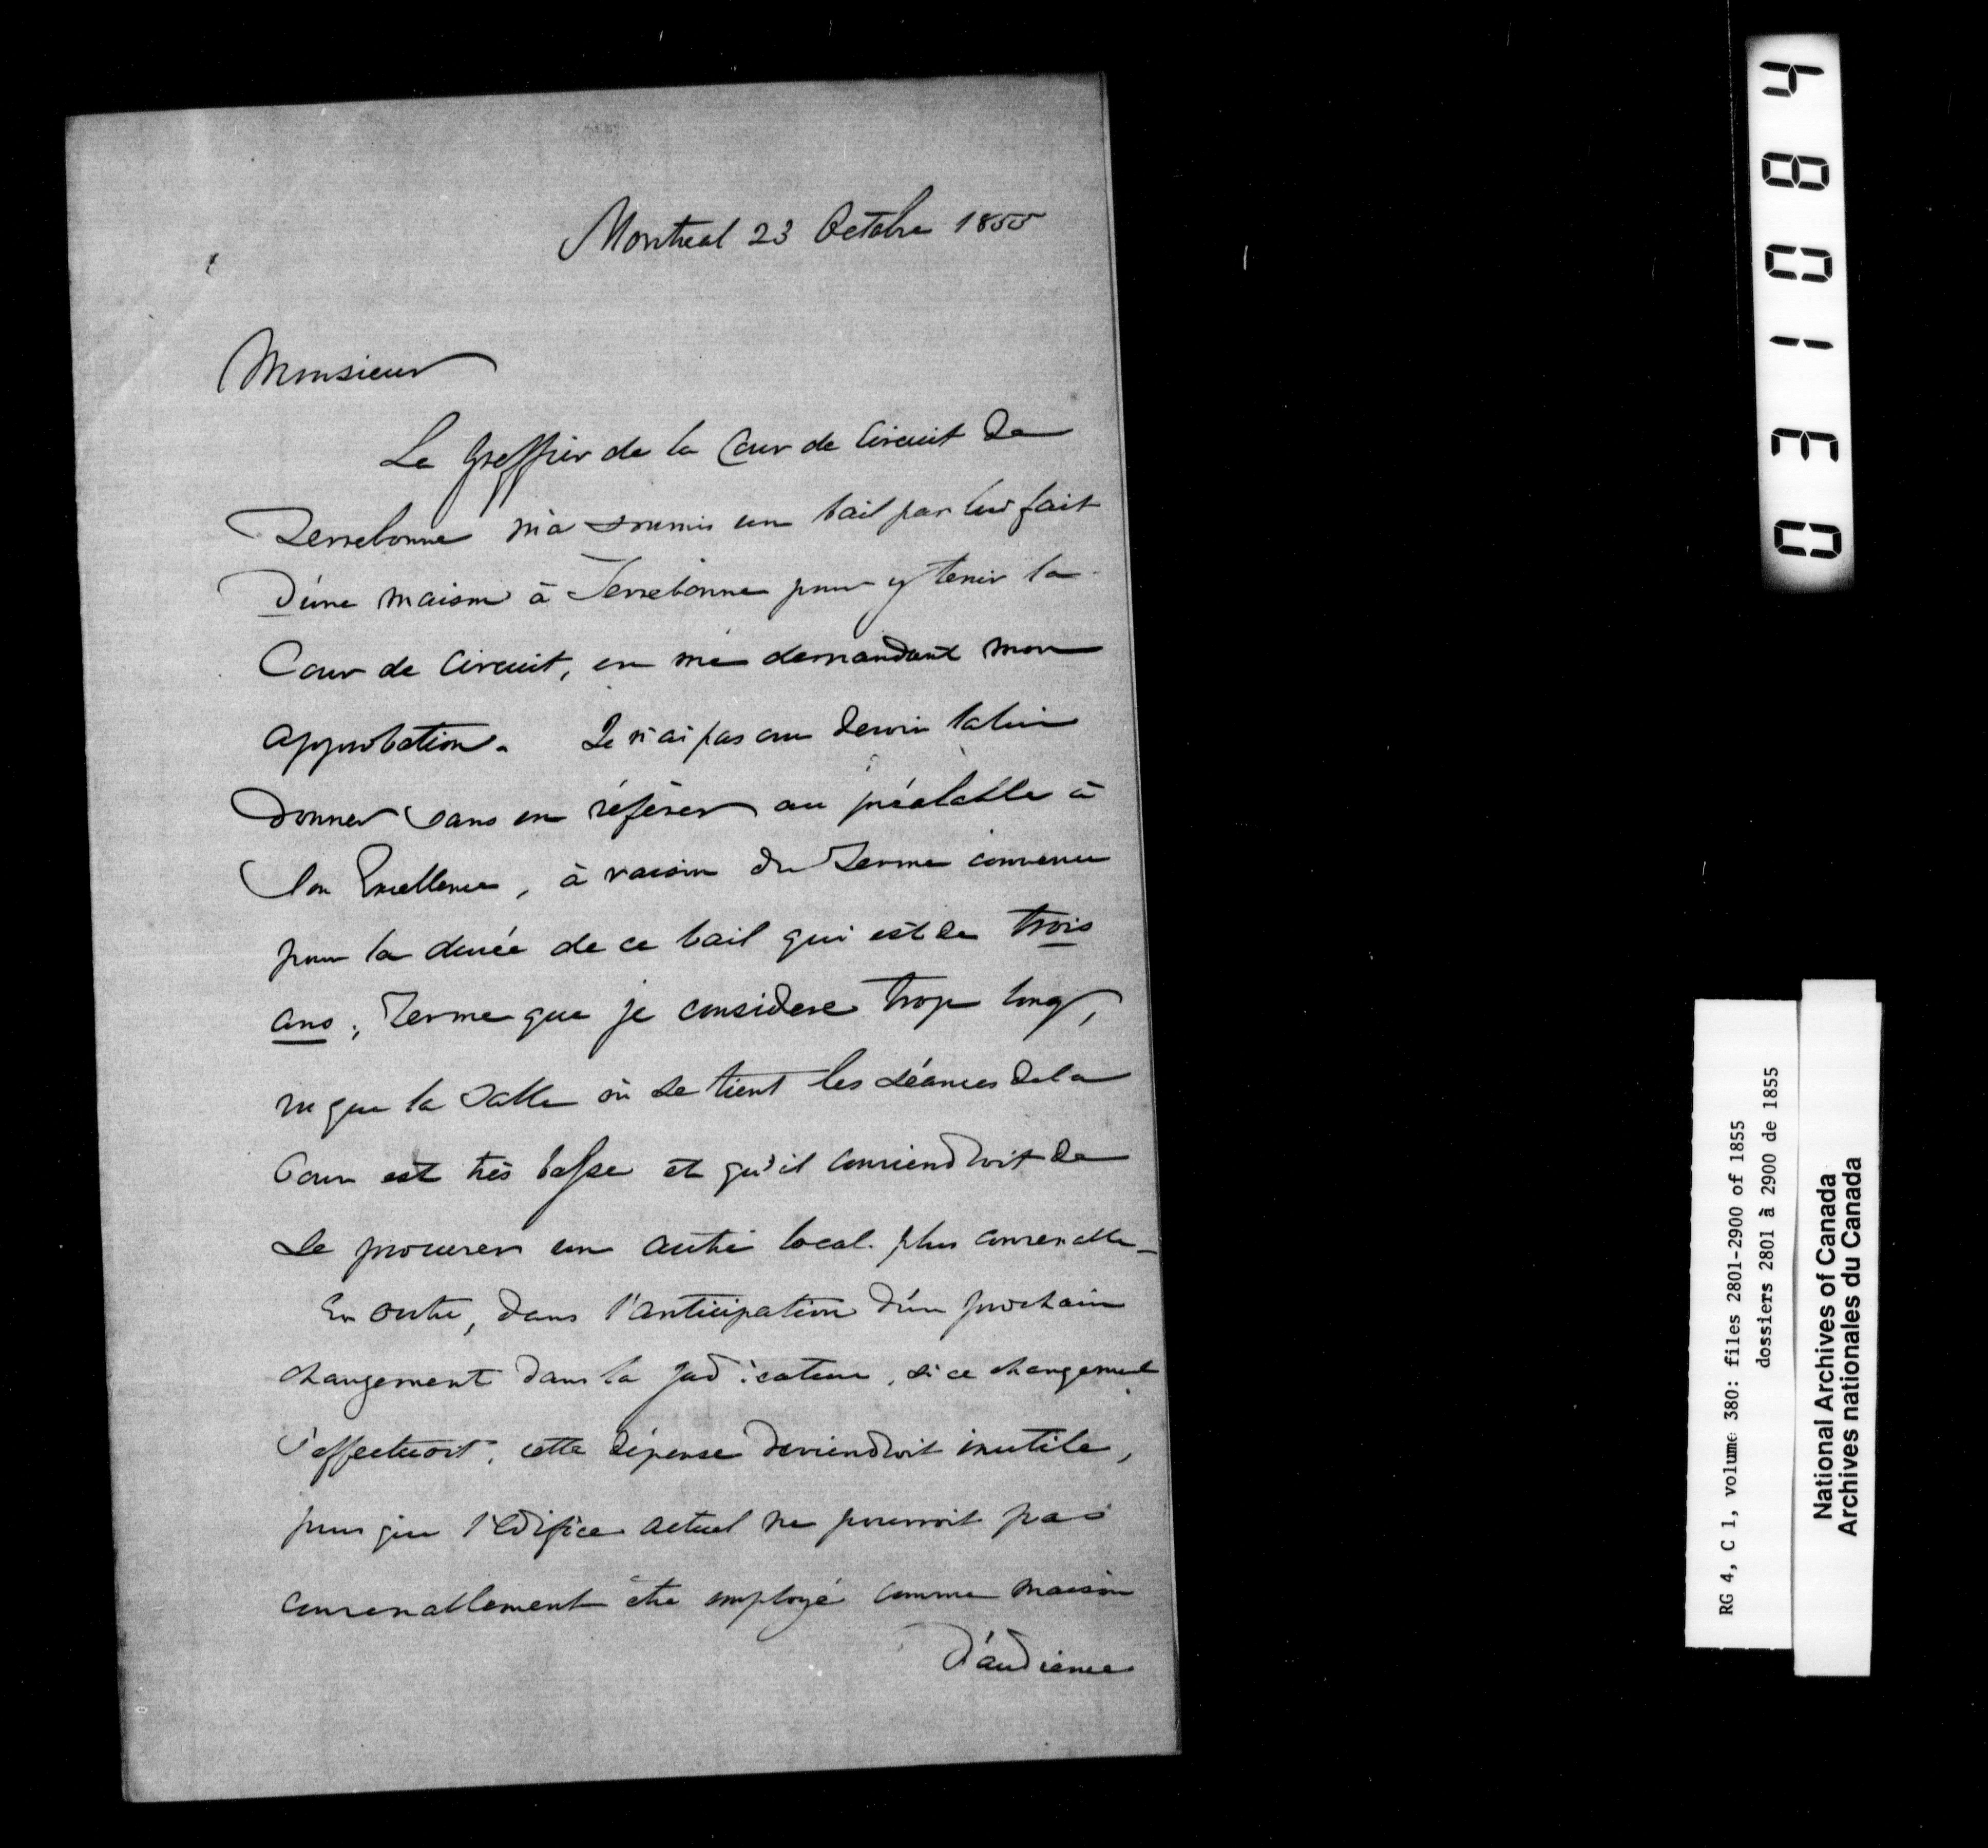 Montreal 23 Octobre 1855
Monsieur
Le Greffier de la Cour de Circuit de
Terrebonne m'a soumis un bail par lui fait
d'une maison à Terrebonne pour y tenir la
Cour de Circuit, en me demandant mon
approbation. Je n'ai pas cru devoir la lui
donner sans en référer au préalable à
Son Excellence, à raison du terme convenu
pour la durée de ce bail qui est de trois
ans; terme que je considere trop long,
vu que la salle où se tient les séances de la
Cour est très basse et qu'il conviendroit de
se procurer un autre local plus convenable_
En outre, dans l'anticipation d'un prochain
changement dans la judicature, si ce changement
s'effectuoit, cette dépense deviendroit inutile,
puis que l'edifice actuel ne pourroit pas
convenablement être employé comme maison
d'audience
031084
RG 4, C 1, volume 380: files 2801-2900 of 1855
dossiers 2801 à 2900 de 1855
National Archives of Canada
Archives nationales du Canada